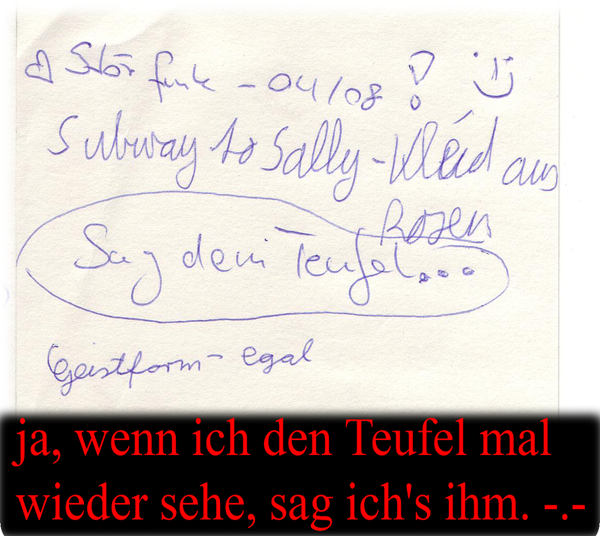 Störfunk - 04/08 !
Subway to Sally - Kleid aus
Rosen
Sag dem Teufel...
Geistform - egal
ja, wenn ich den Teufel mal
wieder sehe, sag ich's ihm. -.-